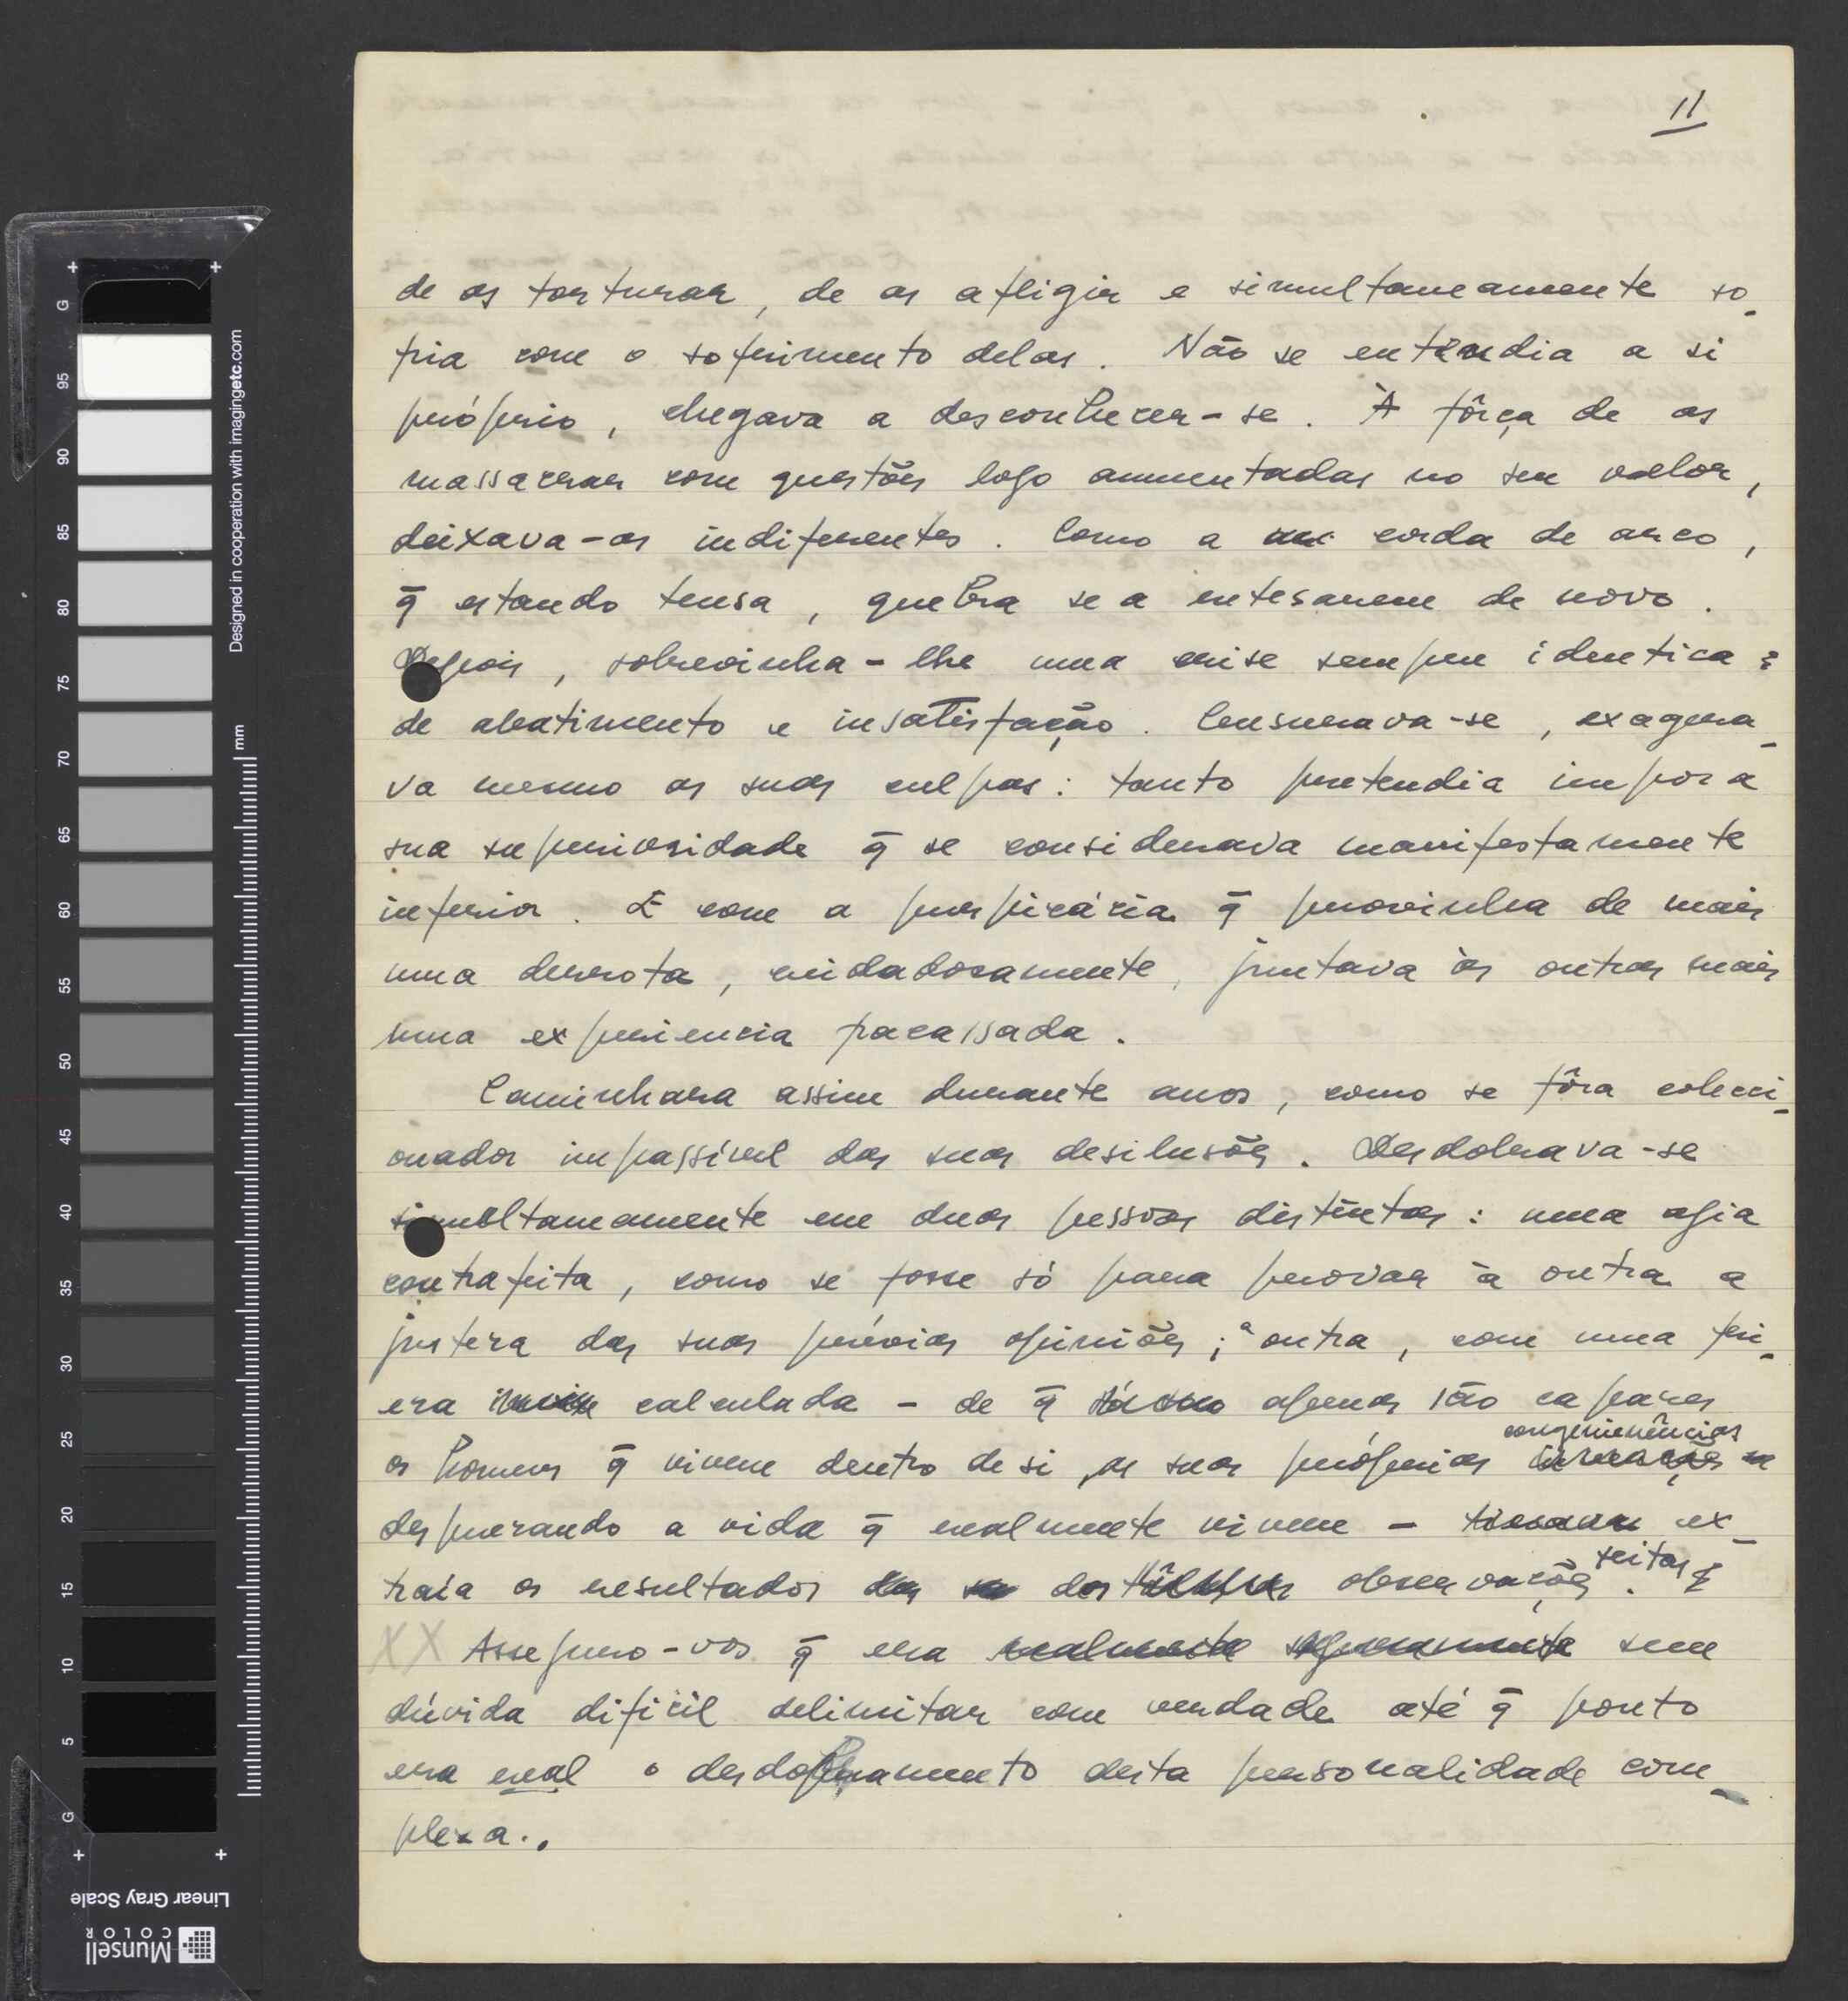 11
de as torturar, de as afligir e simultaneamente so-
fria com o sofrimento delas. Não se entendia a si
próprio, chegava a desconhecer-se. À fôrça de as
massacrar com questões logo aumentadas no seu valor,
deixava-as indiferentes. Como a corda de arco,
q̄ estando tensa, quebra se a entesarem de novo.
Depois, sobrevinha-lhe uma crise sempre identica:
de abatimento e insatisfação. Censurava-se, exagera-
va mesmo as suas culpas: tanto pretendia impor a
sua superioridade q̄ se considerava manifestamente
inferior. E com a perspicácia q̄ provinha de mais
uma derrota, cuidadosamente, juntava às outras mais
uma experiencia fracassada.
Caminhara assim durante anos, como se fôra coleci-
onador impassível das suas desilusões. Desdobrava-se
simultaneamente em duas pessoas distintas: uma agia
contrafeita, como se fosse só para provar à outra a
justeza das suas prévias opiniões; a outra, com uma fri-
eza calculada - de q̄ apenas são capazes
os homens q̄ vivem dentro de si, as suas próprias
congeminências
desprezando a vida q̄ realmente vivem - ex-
traía os resultados das observações feitas.
XX Asseguro-vos q̄ era realmente seguramente sem
dúvida difícil delimitar com verdade até q̄ ponto
era real o desdobramento desta personalidade com-
plexa..
Designed in cooperation with imagingetc.com
mm
G 95 90 85 80 75 70 65 60 55 50 45 40 35 30 25 20 15 10 5 G
Linear Gray Scale
Munsell
COLOR